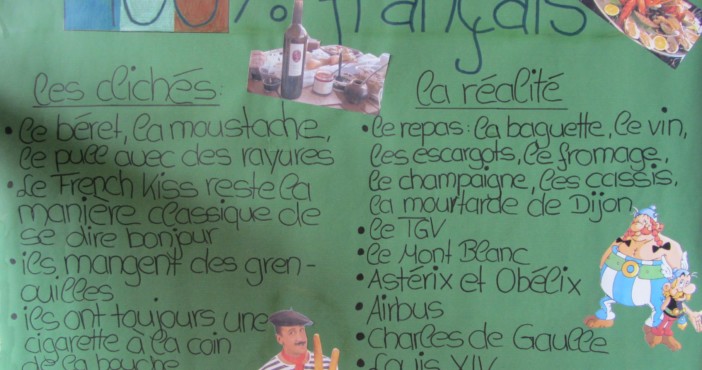 100% français
les clichés:
• le béret, la moustache,
le pull avec des rayures
• Le French Kiss reste la
manière classique de
se dire bonjour
• ils mangent des gren-
ouilles
• ils ont toujours une
cigarette à la coin
de la bouche
la réalité
• le repas: la baguette, le vin,
les escargots, le fromage,
le champaigne, les cassis,
la mourtarde de Dijon
• le TGV
• le Mont Blanc
• Astérix et Obélix
• Airbus
• Charles de Gaulle
• Louis XIV